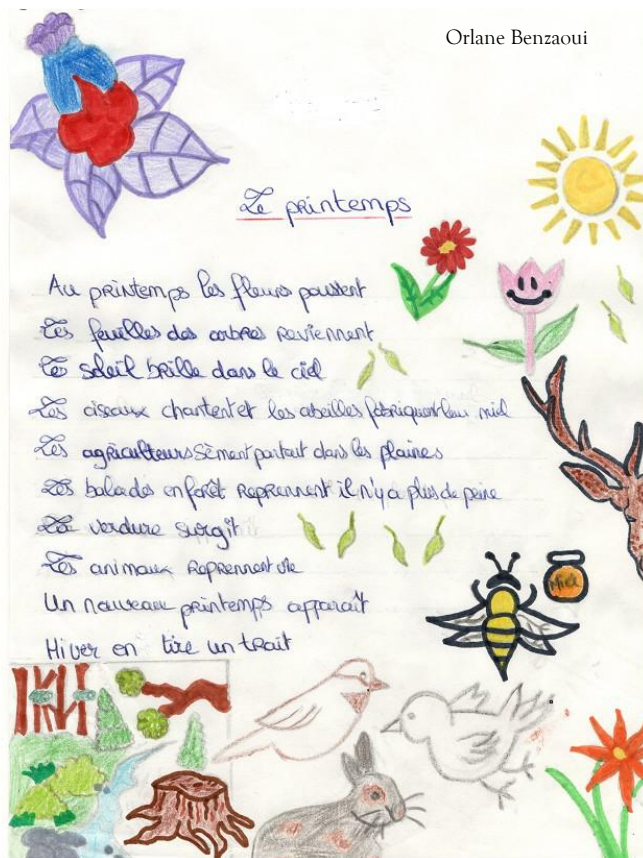 Orlane Benzaoui
Le printemps
Au printemps les fleurs poussent
Les feuilles des arbres reviennent
Le soleil brille dans le ciel
Les oiseaux chantent et les abeilles fabriquent leur miel
Les agriculteurs sèment partout dans les plaines
Les balades en forêt reprennent il n'y a plus de peine
La verdure surgit
Les animaux reprennent vie
Un nouveau printemps apparaît
Hiver en tire un trait
Miel